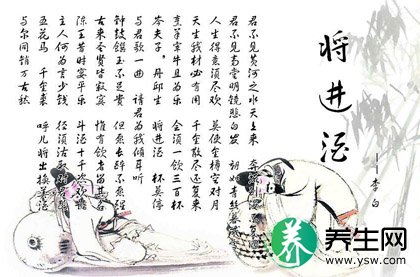 将进酒
——李白
君不见黄河之水天上来 奔流
君不见高堂明镜悲白发 朝如青丝暮成雪
人生得意须尽欢 莫使金樽空对月
天生我材必有用 千金散尽还复来
烹羊宰牛且为乐 会须一饮三百杯
岑夫子，丹丘生 将进酒 杯莫停
与君歌一曲 请君为我倾耳听
钟鼓馔玉不足贵 但愿长醉不愿醒
古来圣贤皆寂寞 惟有饮者留其名
陈王昔时宴平乐 斗酒十千恣欢谑
主人何为言少钱 径须沽取对君酌
五花马 千金裘 呼儿将出换美酒
与尔同销万古愁
养 养生网
www.ysw.com